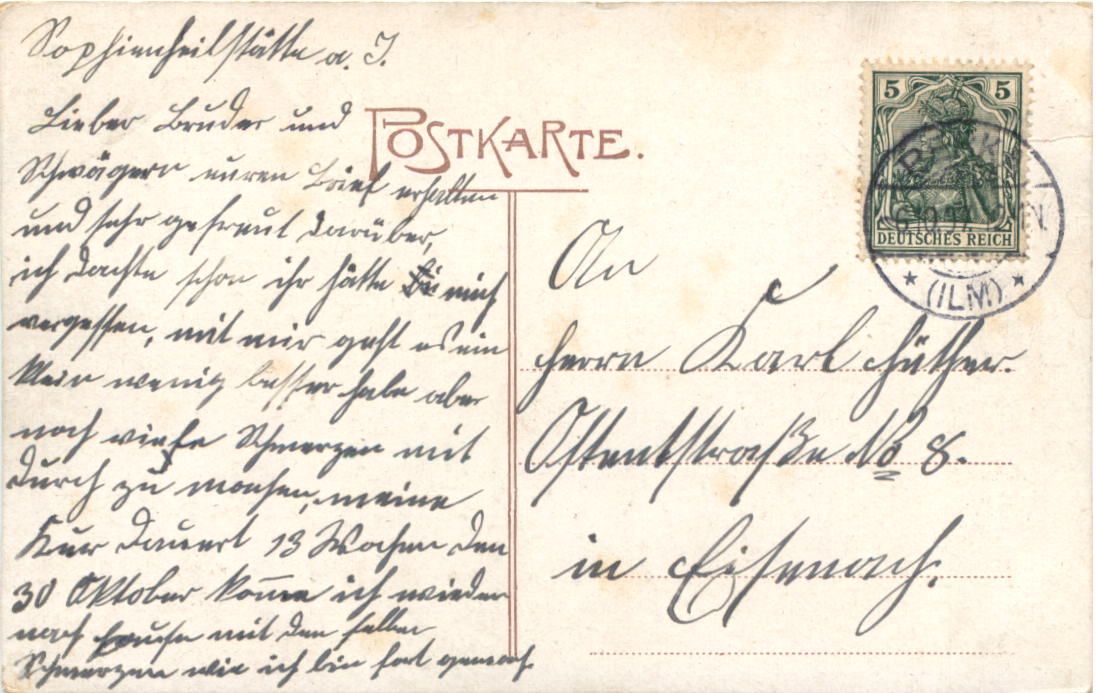 Sophienheilstätte a. I.
Lieber Bruder und
Schwägern euren Brief erhalten
und sehr gefreut darüber,
ich dachte schon ihr hätte mich
vergessen, mit mir geht es ein
klein wenig besser habe aber
noch viele Schmerzen mit
durch zu machen, meine
Kur dauert 13 Wochen den
30 Oktober kom̅e ich wieder
nach Hause mit den selben
Schmerzen wie ich bin fort gemach.
POSTKARTE.
5 5
DEUTSCHES REICH
6.10.07 N.
* (ILM) *
An
Herrn Karl Hüther.
Ostendstraße No 8.
in Eisenach.